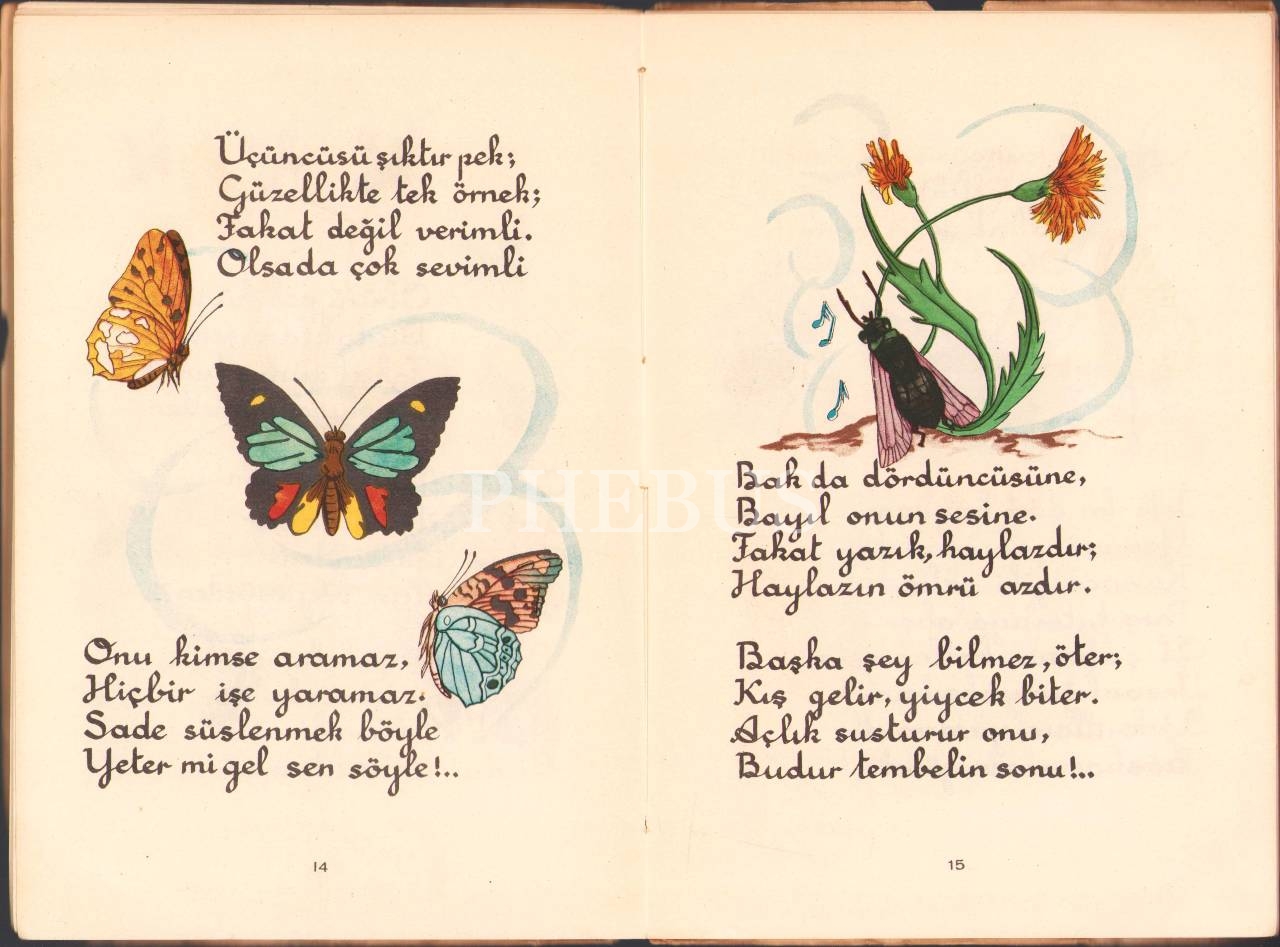 Üçüncüsü şıktır pek;
Güzellikte tek örnek;
Fakat değil verimli.
Olsada çok sevimli
Onu kimse aramaz,
Hiçbir işe yaramaz.
Sade süslenmek böyle
Yeter mi gel sen söyle!..
14
PHEBUS
Bak da dördüncüsüne,
Bayıl onun sesine.
Fakat yazık, haylazdır;
Haylazın ömrü azdır.
Başka şey bilmez, öter;
Kış gelir, yiycek biter.
Açlık susturur onu,
Budur tembelin sonu!..
15